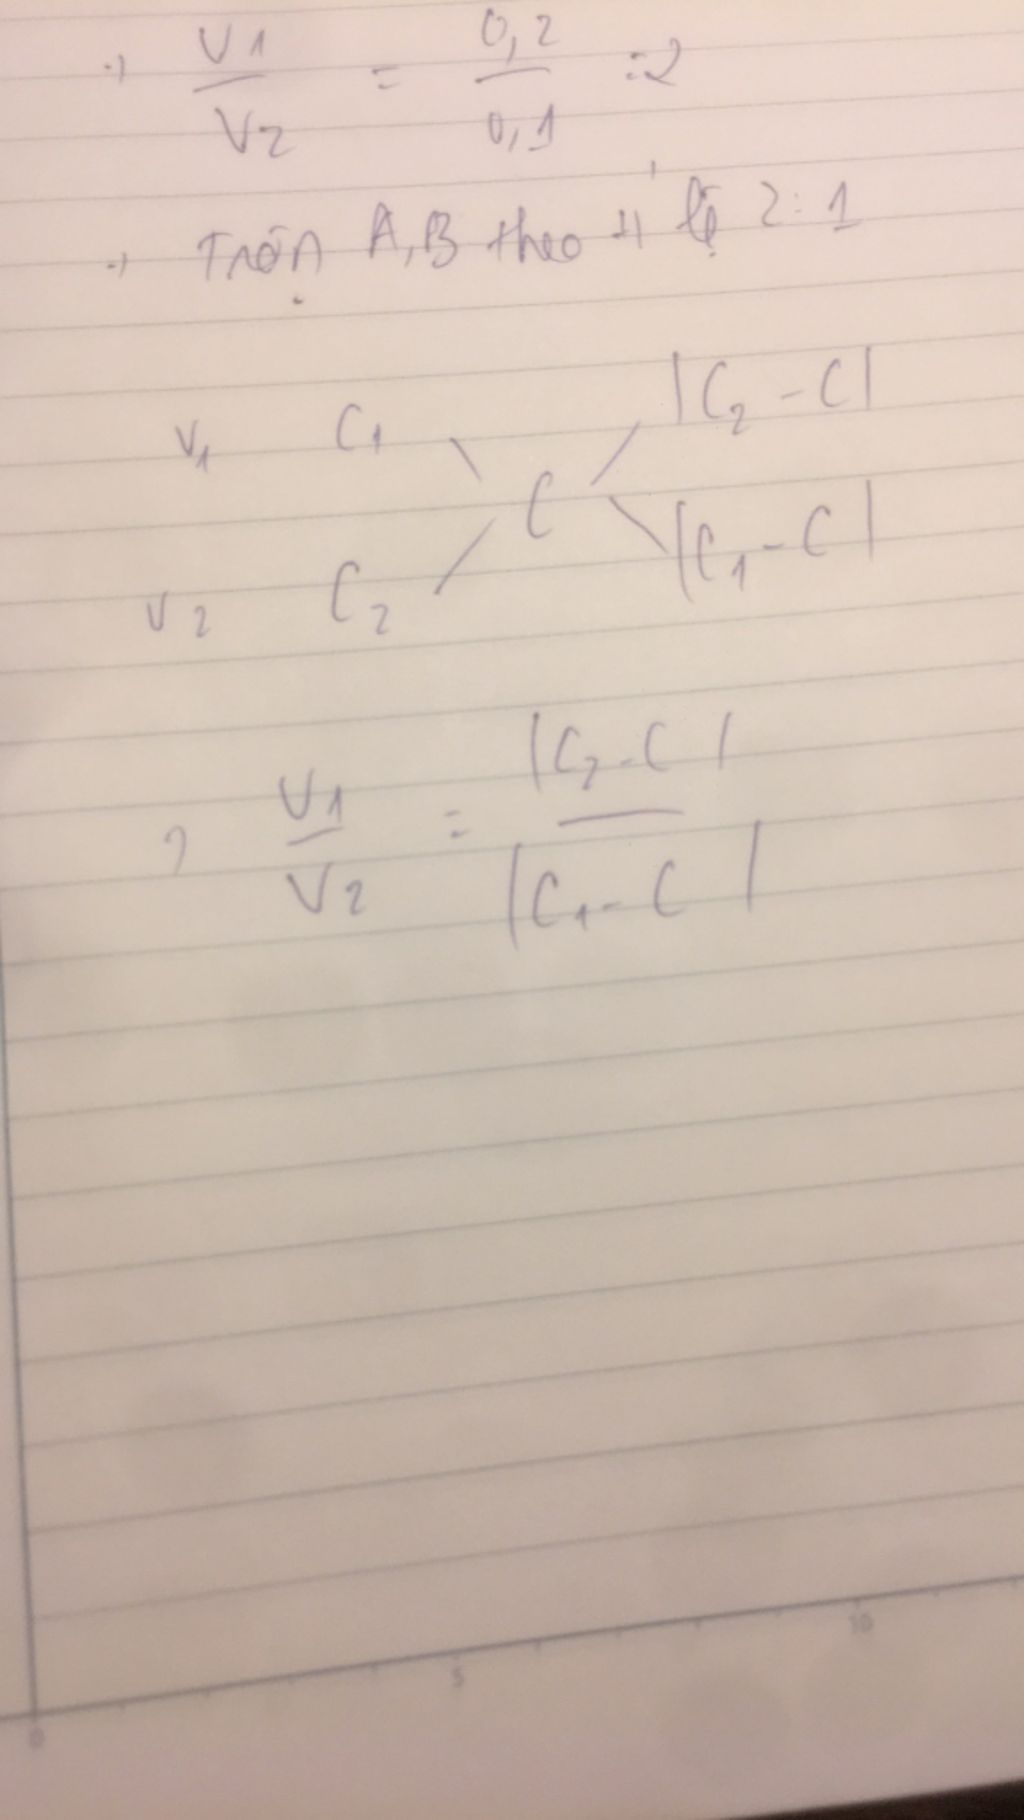 → V1/V2 = 0,2/0,1 = 2
→ Trộn A, B theo tỉ lệ 2:1
V1 C1 |C2 - C|
C
V2 C2 |C1 - C|
→ V1/V2 = |C2 - C|/|C1 - C|
0 5 10